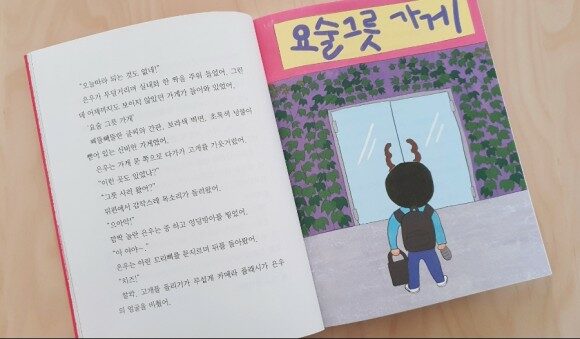 "오늘따라 되는 것도 없네!"
은우가 투덜거리며 실내화 한 짝을 주워 들었어. 그런
데 어제까지도 보이지 않았던 가게가 들어와 있었어.
'요술 그릇 가게'
삐뚤빼뚤한 글씨의 간판, 보라색 벽면, 초록색 넝쿨이
뻗어 있는 신비한 가게였어.
은우는 가게 문 쪽으로 다가가 고개를 기웃거렸어.
"이런 곳도 있었나?"
"그릇 사러 왔어?"
뒤편에서 갑작스레 목소리가 들려왔어.
"으아악!"
깜짝 놀란 은우는 쿵 하고 엉덩방아를 찧었어.
"아 아야~."
은우는 아린 꼬리뼈를 문지르며 뒤를 돌아봤어.
"치즈!"
찰칵. 고개를 돌리기가 무섭게 카메라 플래시가 은우
의 얼굴을 비췄어.
요술그릇 가게